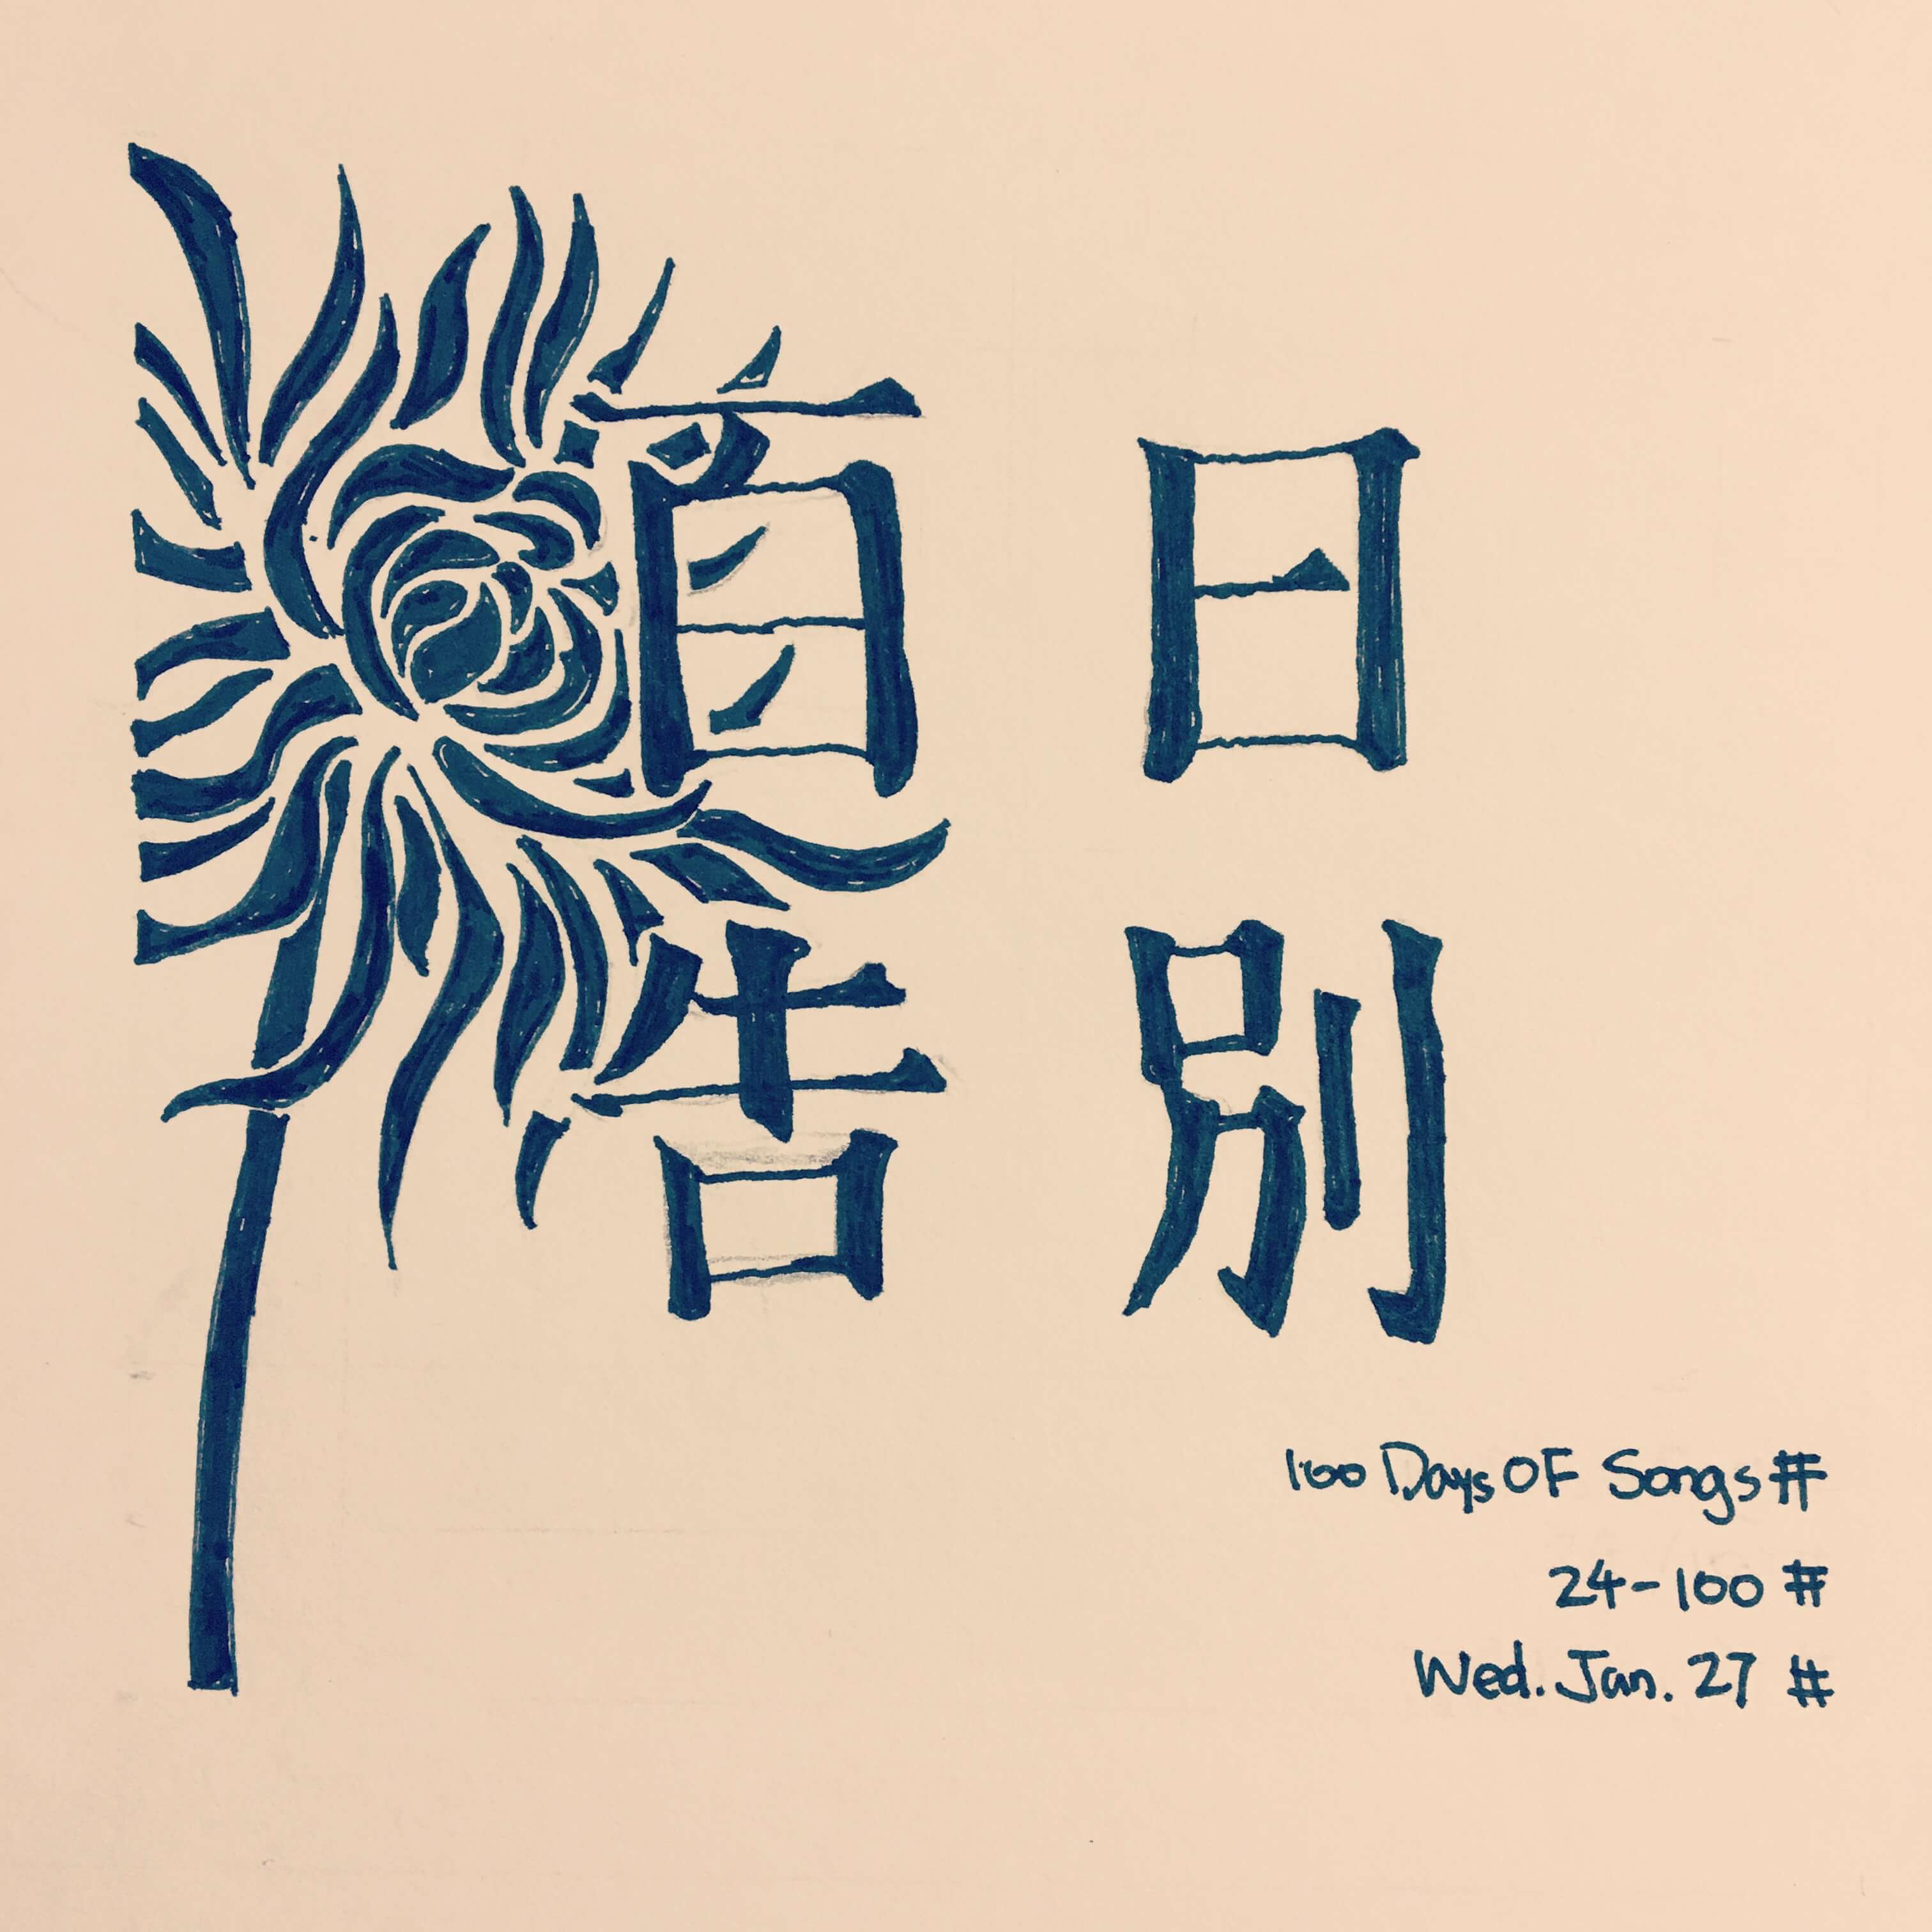 百日
告別
100 Days OF Songs #
24-100 #
Wed. Jan. 27 #